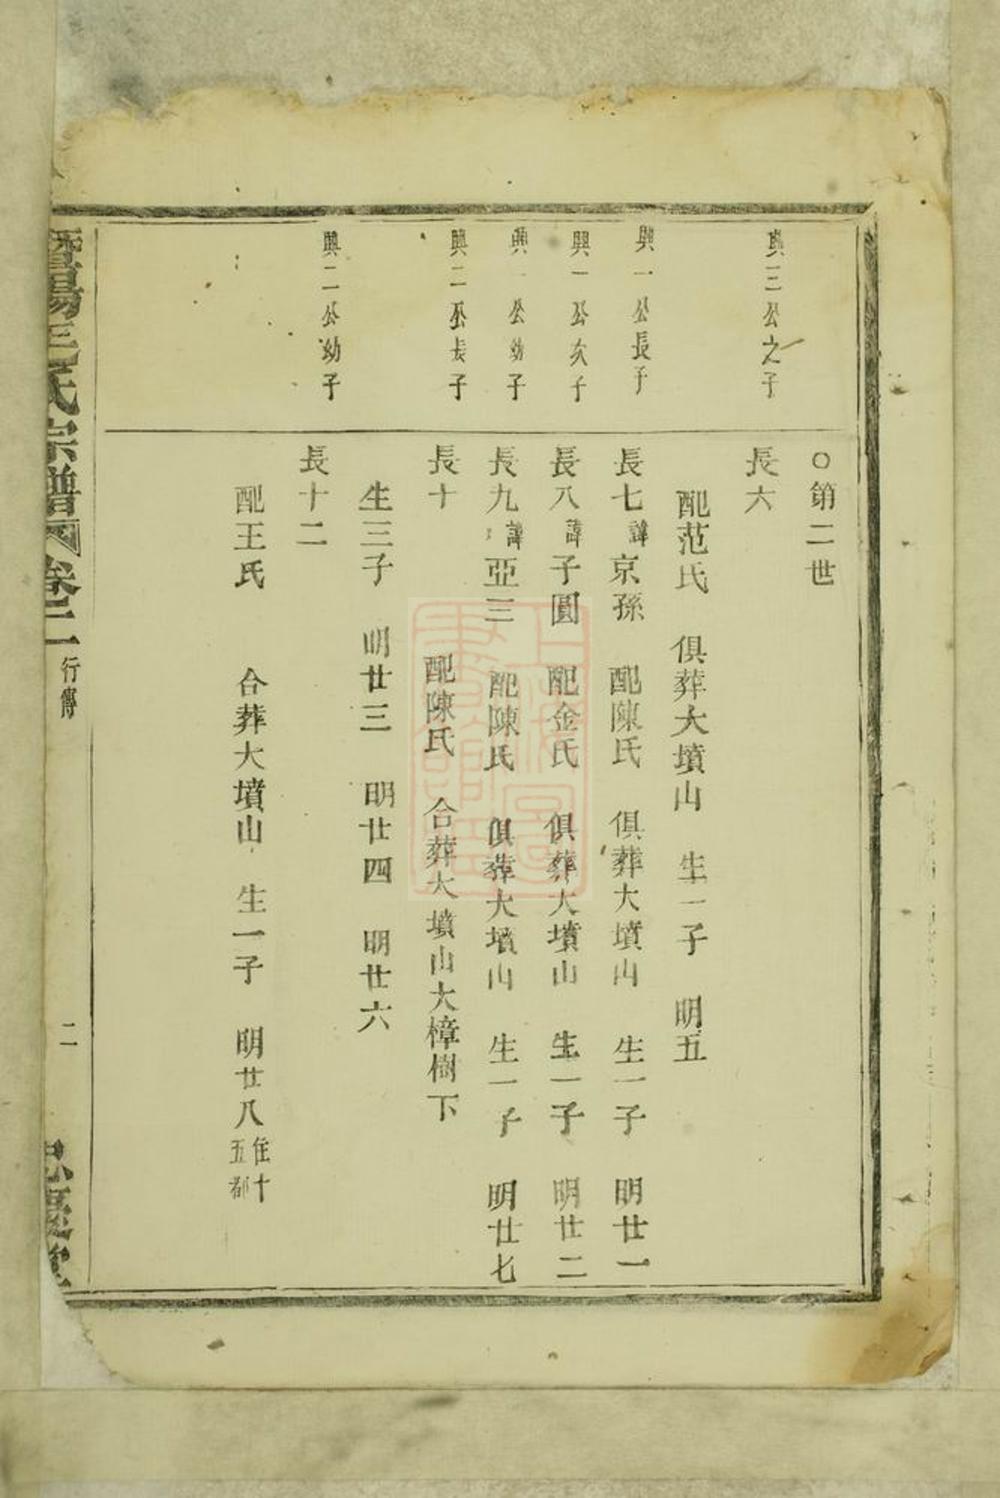 ○第二世
興三公之子
長六
配范氏 俱葬大墳山 生一子 明五
興一公長子
長七諱京孫 配陳氏 俱葬大墳山 生一子 明廿一
興一公次子
長八諱子圓 配金氏 俱葬大墳山 生一子 明廿二
興一公幼子
長九諱亞三 配陳氏 俱葬大墳山 生一子 明廿七
興二公長子
長十 配陳氏 合葬大墳山大樟樹下
生三子 明廿三 明廿四 明廿六
興二公幼子
長十二
配王氏 合葬大墳山 生一子 明廿八住十五都
暨陽 氏宗譜 卷二 行傳 二